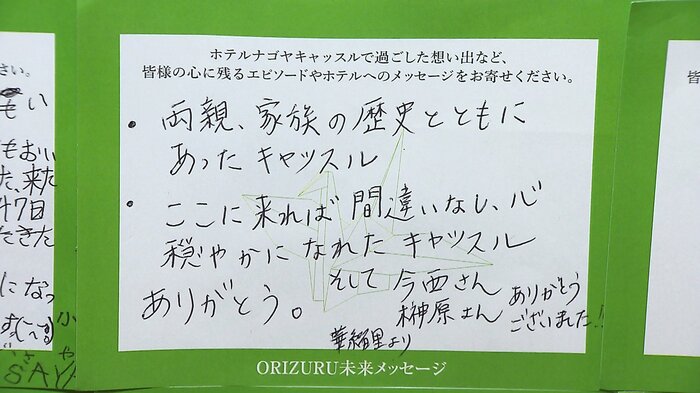 ホテルナゴヤキャッスルで過ごした想い出など、
皆様の心に残るエピソードやホテルへのメッセージをお寄せください。
• 両親、家族の歴史とともに
あったキャッスル
• ここに来れば間違いなし、心
穏やかになれたキャッスル
ありがとう。
そして今西さん
榊原さん
ありがとう
ございました!!
より
ORIZURU未来メッセージ
さい。
もい
もおい
た、来た
47日
できた
になっ
SAYA
皆